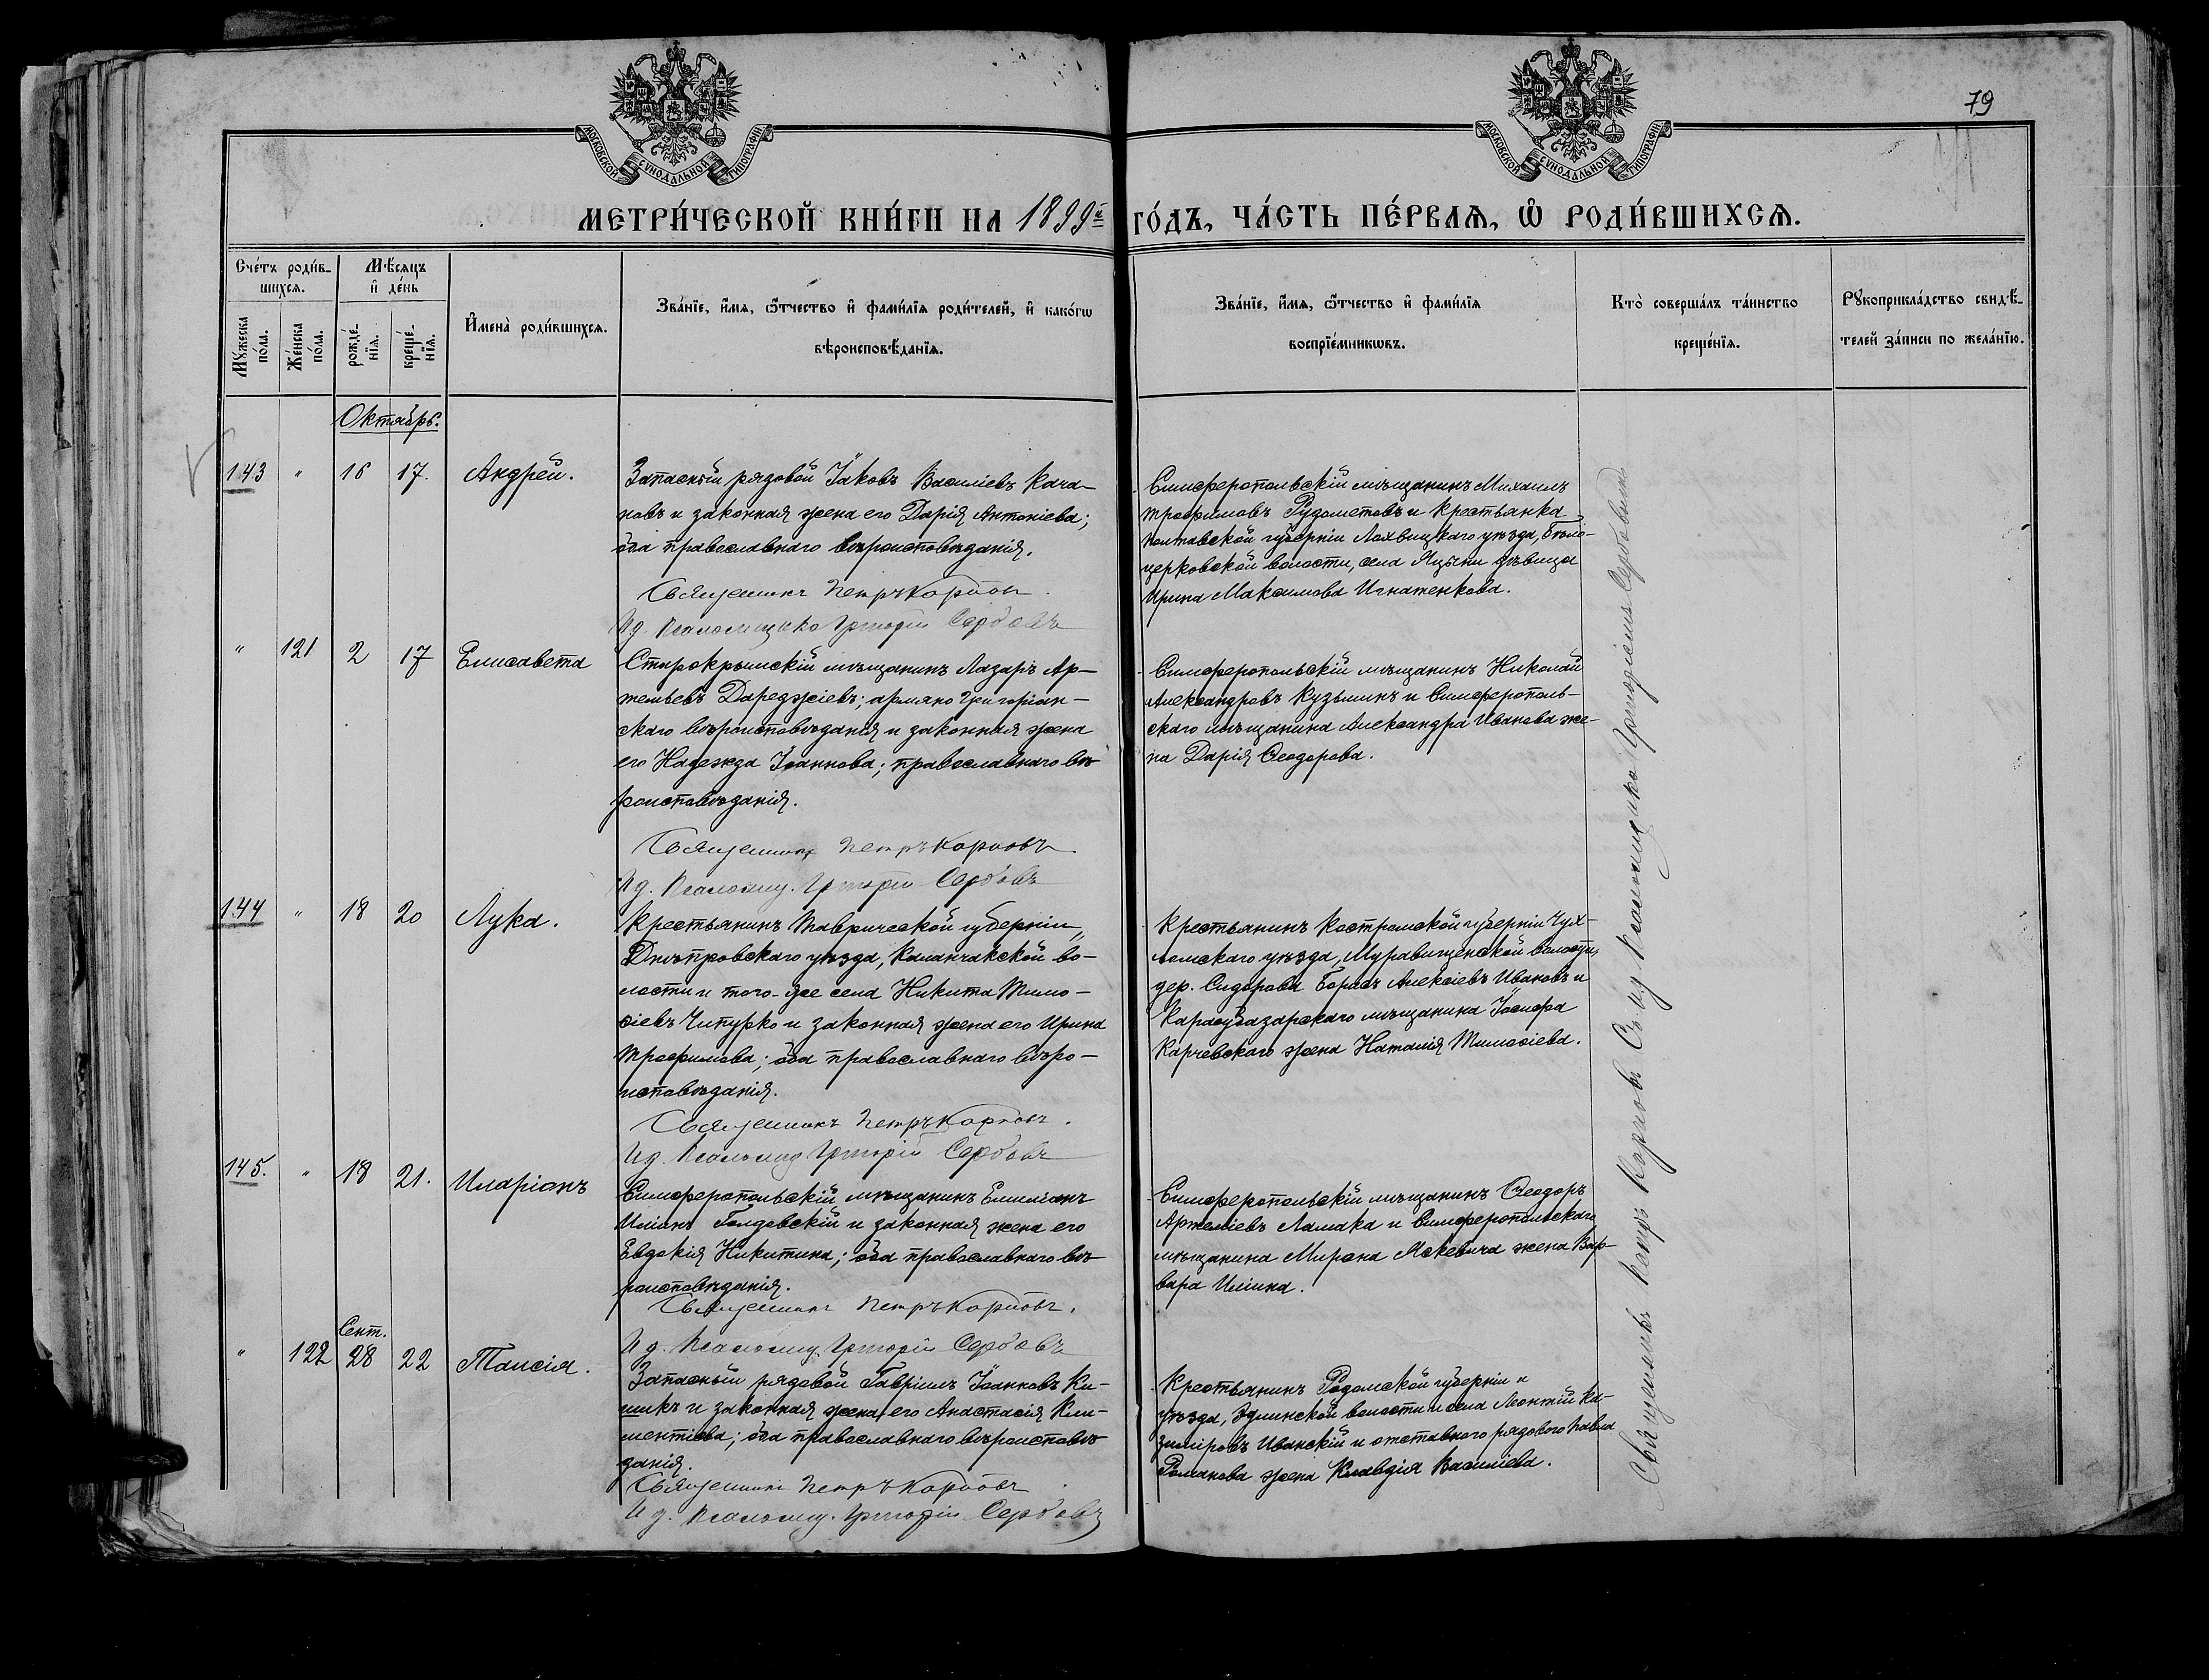 79
МОСКОВСКОЙ СѴНОДАЛЬНОЙ ТИПОГРАФІИ
МОСКОВСКОЙ СѴНОДАЛЬНОЙ ТИПОГРАФІИ
МЕТРИ́ЧЕСКОЙ КНИ́ГИ НА 1899й ГО́ДЪ, ЧА́СТЬ ПЕ́РВАѦ, Ѿ РОДИ́ВШИХСѦ.
Сче́тъ роди́в-
шихсѧ.
Мꙋ́жеска по́ла.
Же́нска по́ла.
Мѣ́сѧцъ
и҆ де́нь
рожде́-нїѧ.
креще́-нїѧ.
И҆мена̀ роди́вшихсѧ.
Зва́нїе, и҆́мѧ, ѻ҆́тчество и҆ фами́лїѧ роди́телей, и҆ како́гѡ
вѣроисповѣ́данїѧ.
Зва́нїе, и҆́мѧ, ѻ҆́тчество и҆ фами́лїѧ
воспрїе́мникѡвъ.
Кто̀ соверша́лъ та́инство
креще́нїѧ.
Рꙋкоприкла́дство свидѣ́-
телей за́писи по жела́нїю.
Октябрь.
143 " 16 17. Андрей.
Запасный рядовой Іаковъ Василіевъ Кача-
новъ и законная жена его Дарія Антоніева;
оба православнаго вѣроисповѣданія.
Священникъ Петръ Карповъ.
И д. Псаломщика Григорій Сербовъ
Симферопольскій мѣщанинъ Михаилъ
Трофимовъ Рудометовъ и крестьянка
Полтавской губерніи Лохвицкаго уѣзда, Бѣло-
церковской волости, села Яцыни дѣвица
Ирина Максимова Игнатенкова.
" 121 2 17 Елисавета
Старокрымскій мѣщанинъ Лазарь Ар-
темьевъ Дареджіевъ; армяно григоріан-
скаго вѣроисповѣданія и законная жена
его Надежда Іоаннова; православнаго вѣ
роисповѣданія.
Священникъ Петръ Карповъ.
И д. Псаломщ. Григорій Сербовъ
Симферопольскій мѣщанинъ Николай
Александровъ Кузьминъ и Симферополь-
скаго мѣщанина Александра Иванова же-
на Дарія Ѳеодорова.
144 " 18 20 Лука.
Крестьянинъ Таврической губерніи,
Днѣпровскаго уѣзда, Каланчакской во-
лости и того-же села Никита Тимо-
ѳіевъ Чипурко и законная жена его Ирина
Трофимова; оба православнаго вѣро-
исповѣданія.
Священникъ Петръ Карповъ.
И д. Псаломщ Григорій Сербовъ
Крестьянинъ Костромской губерніи Чух-
ломскаго уѣзда, Муравищенской волости,
дер. Сидорова Борисъ Алексіевъ Ивановъ и
Карасубазарскаго мѣщанина Іосифа
Карчевскаго жена Наталія Тимоѳіева.
145. " 18 21. Иларіонъ
Симферопольскій мѣщанинъ Емиліанъ
Иліинъ Голдовскій и законная жена его
Евдокія Никитина; оба православнаго вѣ
роисповѣданія.
Священникъ Петръ Карповъ.
И д. Псаломщ. Григорій Сербовъ
Симферопольскій мѣщанинъ Ѳеодоръ
Артеміевъ Ламака и Симферопольскаго
мѣщанина Мирона Маскевича жена Вар-
вара Иліина.
Сент.
" 122 28 22 Таисія.
Запасный рядовой Гавріилъ Іоанновъ Ки-
шикъ и законная жена его Анастасія Кли-
ментіева; оба православнаго вѣроисповѣ
данія.
Священникъ Петръ Карповъ
И д. Псаломщ. Григорій Сербовъ
Крестьянинъ Радомской губерніи и
уѣзда, волости и села Леонтій Ка-
зиміровъ Иванскій и отставного рядового Павла
Романова жена Клавдія Василіева.
Священникъ Петръ Карповъ Съ псаломщикомъ Григоріемъ Сербовымъ